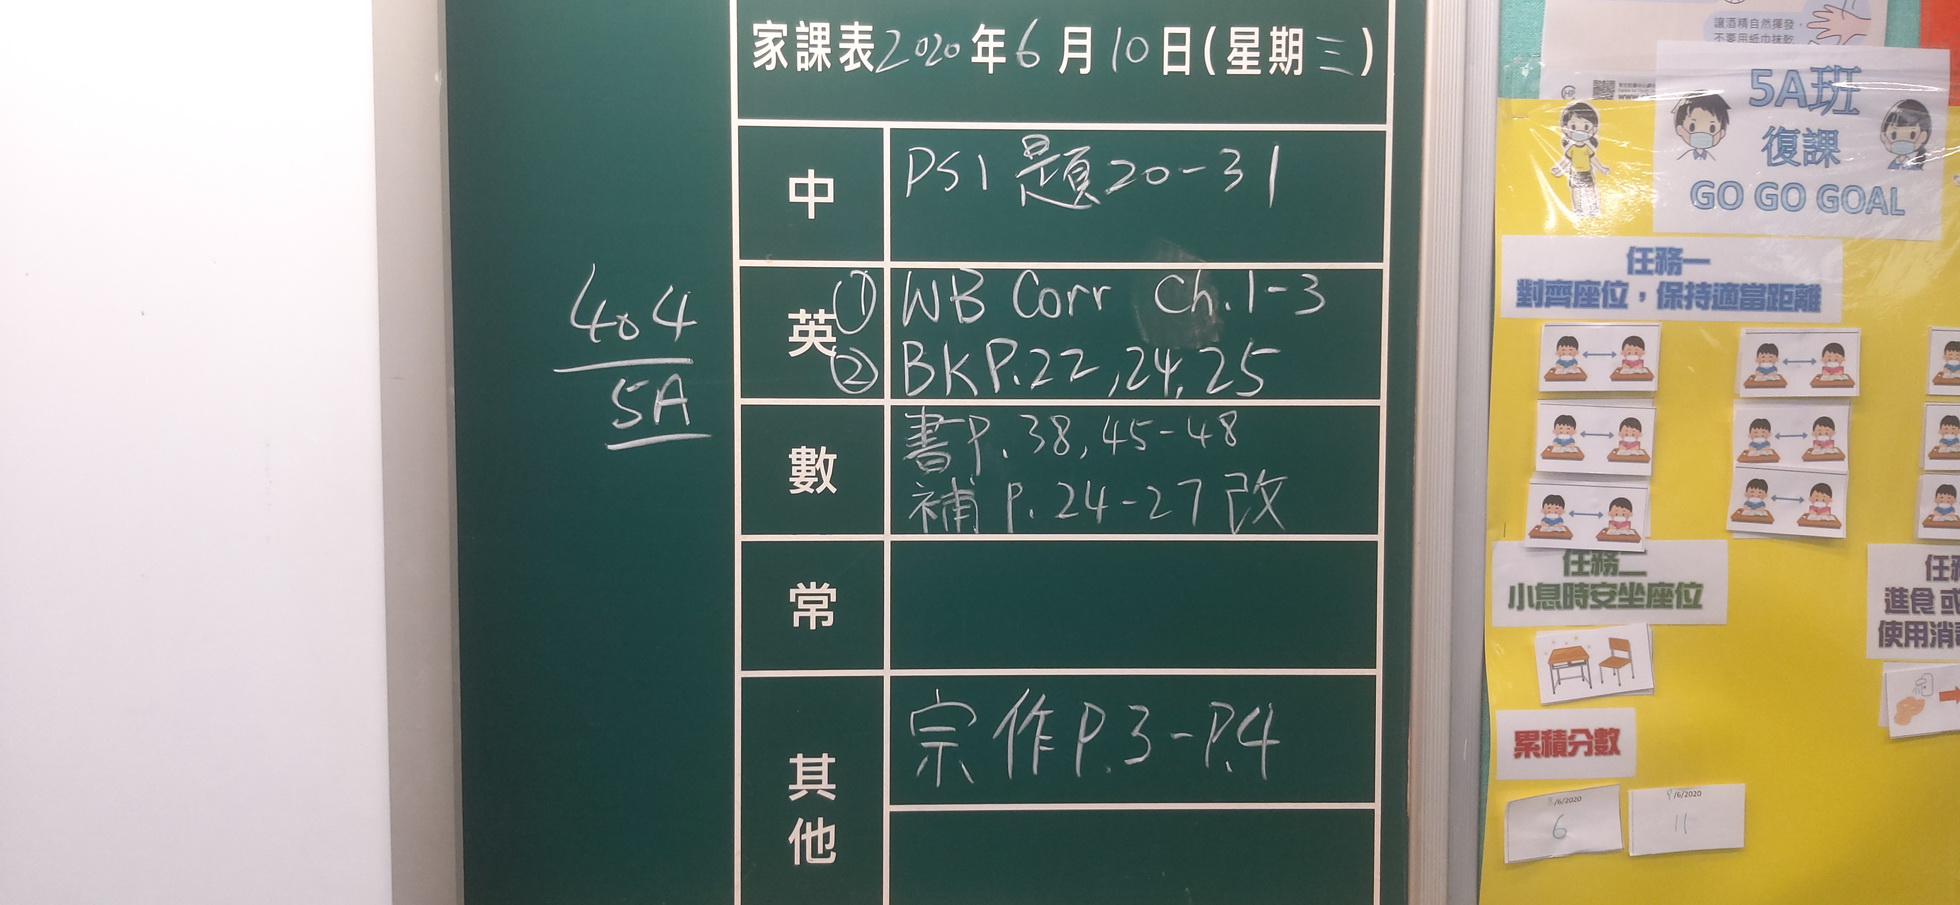 家課表2020年6月10日(星期三)
中
PS1 題20-31
英
① WB Corr Ch.1-3
② BK P.22,24,25
數
書P.38,45-48
補 P.24-27改
常
其他
宗作P.3-P.4
404
5A
讓酒精自然揮發,
不要用紙巾抹乾
5A班
復課
GO GO GOAL
任務一
對齊座位,保持適當距離
任務二
小息時安坐座位
任務
進食或
使用消毒
累積分數
8/6/2020
6
9/6/2020
11